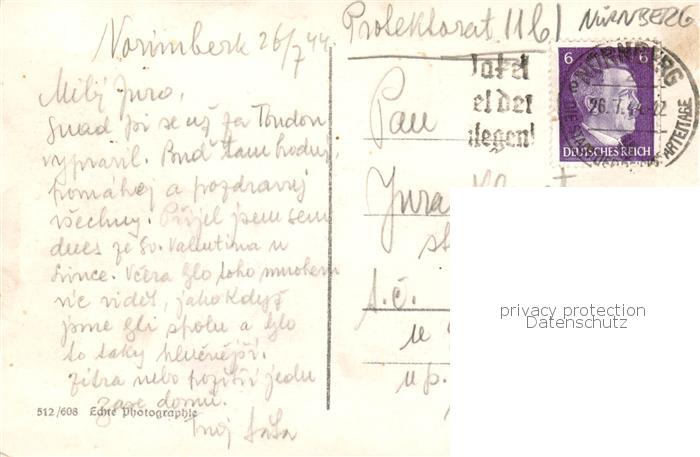 Protektorat 11b/ NÜRNBERG
Norimberk 26/7 44
Milý Juro,
Snad jsi se už za Tondou
vypravil. Buď tam hodný
pomáhej a pozdravuj
všechny. Přijel jsem sem
dnes ze Sv. Valentina u
Lince. Včera šlo toho mnohem
víc vidět, jako když
jsme šli spolu a šlo
to taky hlučněji.
Zítra nebo pozítří jedu
zase domů.
Tvůj táta
512/608 Echte Photographie
6 6
DEUTSCHES REICH
NÜRNBERG
26.7.44.12
DIE STADT DER REICHSPARTEITAGE
el der
legen!
Pan
Jura
st
t.č.
u
u p.
privacy protection
Datenschutz